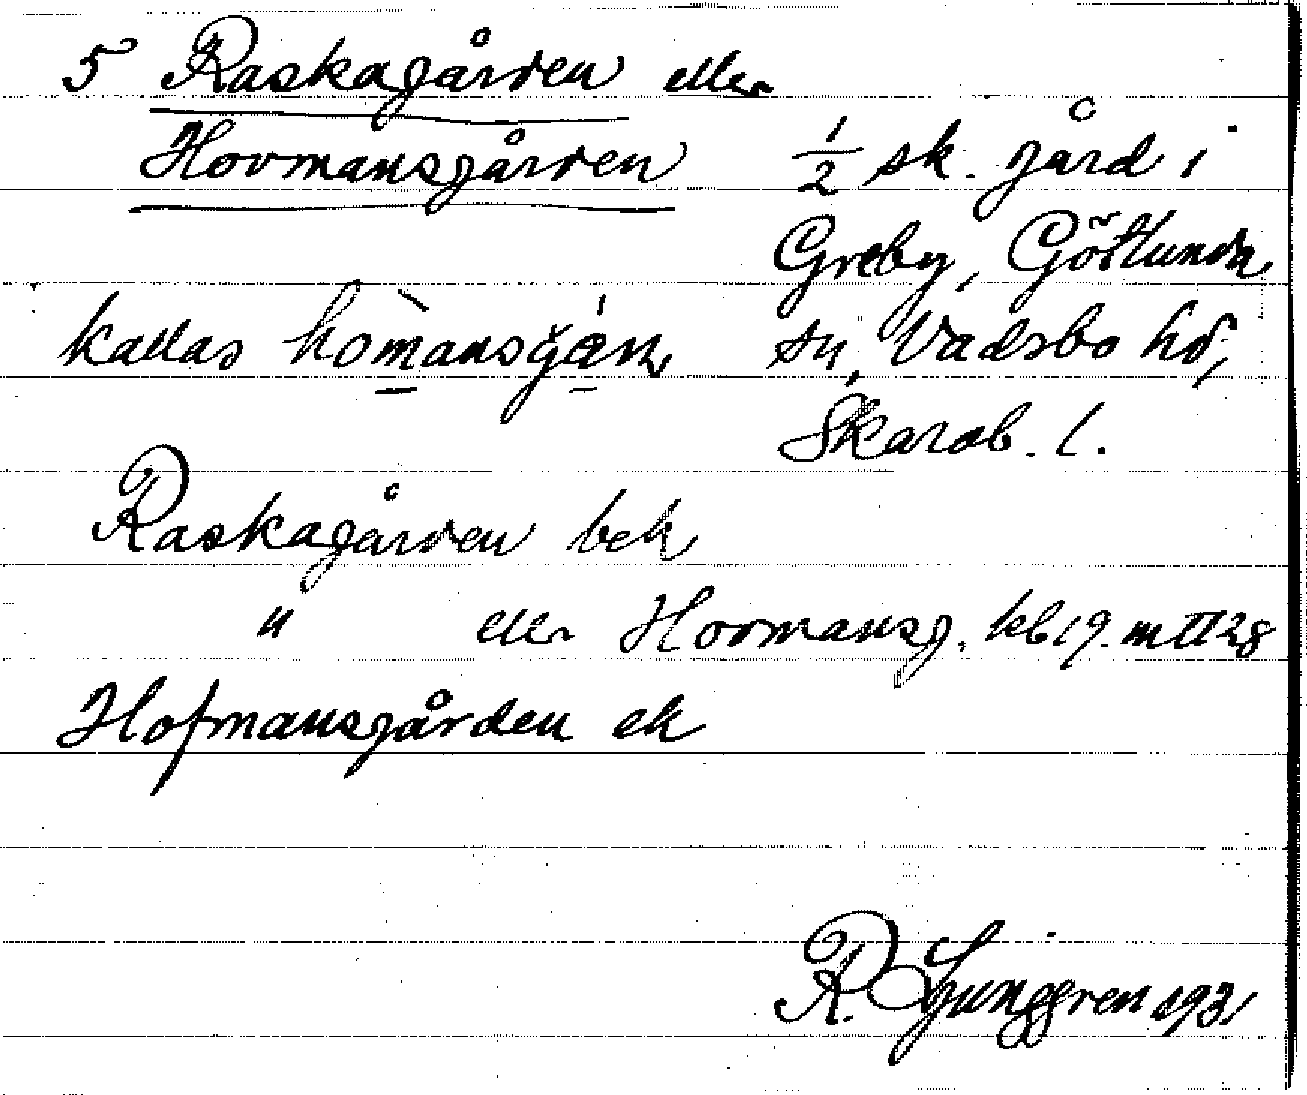 5 Raskagården eller
Hovmansgården
1/2 sk. gård i
Greby, Götlunda
sn, Vadsbo hd,
Skarab. l.
kallas
Raskagården bek
" eller Hovmansg. kb19. mtl 28
Hofmansgården ek
R. Ljunggren 1931